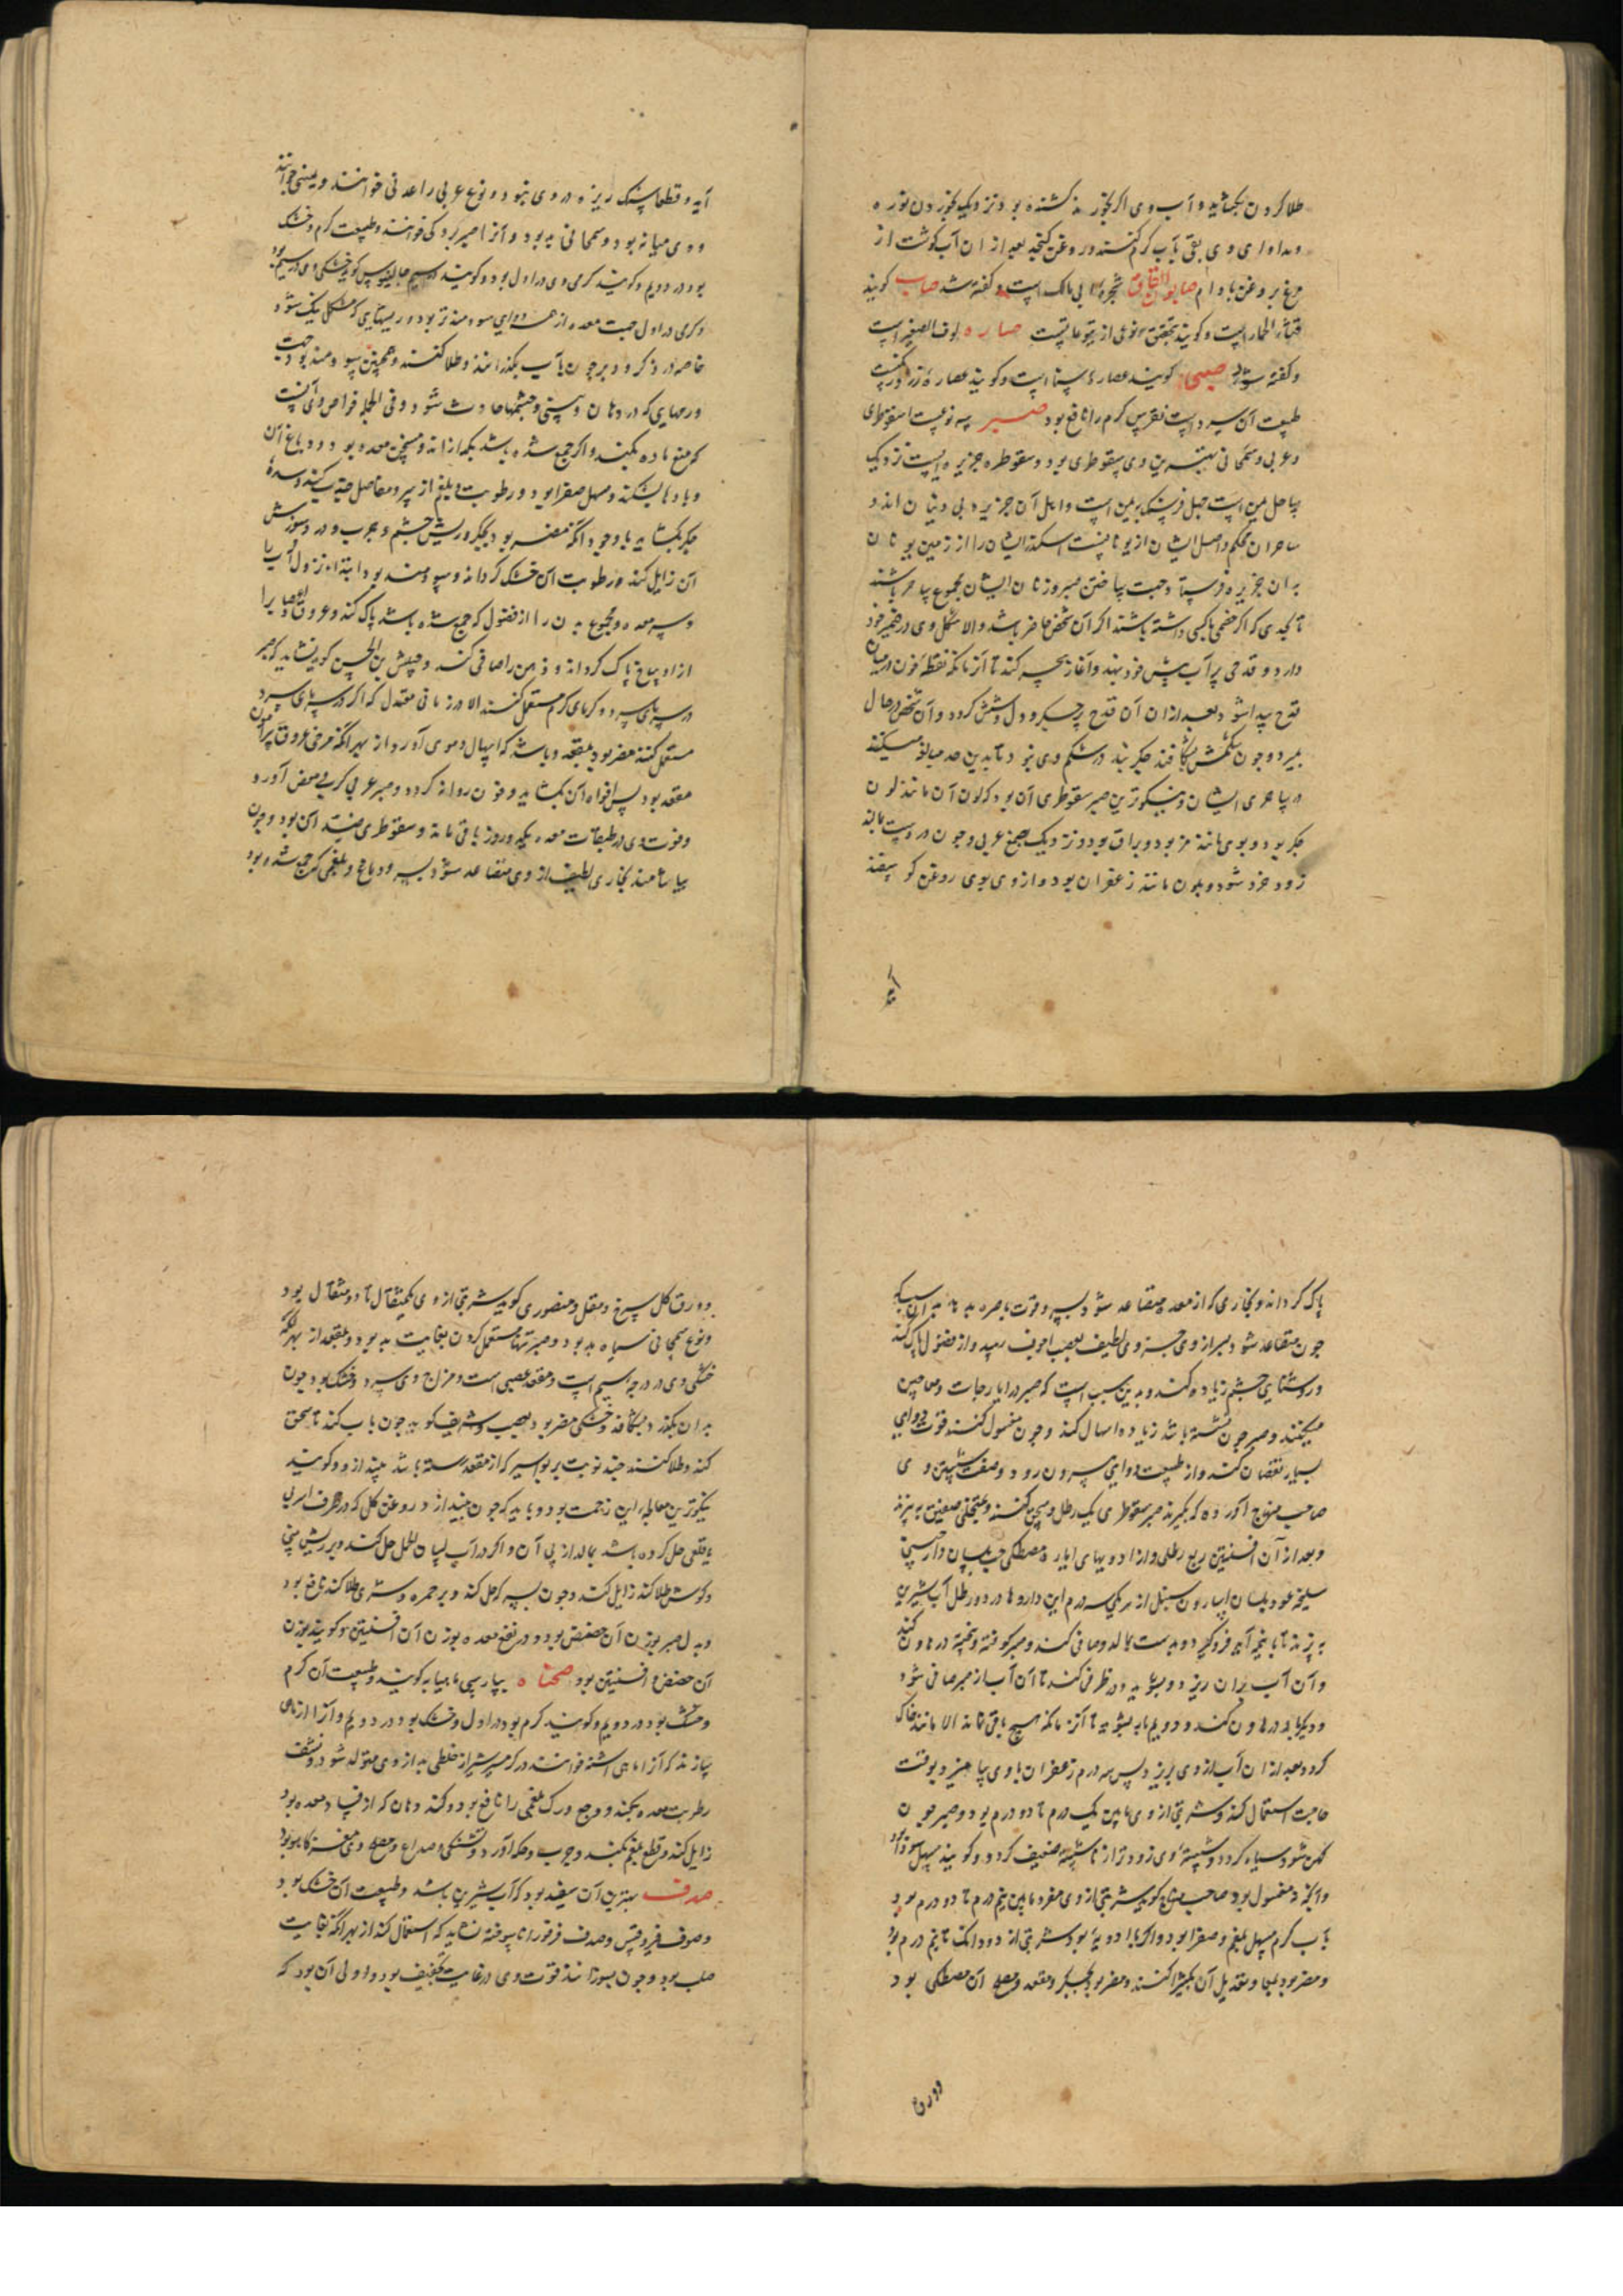 طلا کردن بگشاید و آب وی اگر بخورند کشنده بود و نزدیک بخوردن نوره
و مداوای وی بقی بآب گرم کنند و روغن کنجد بعد از ان آب گوشت از
مرغ بروغن بادام صابون القاق شجره ابی مالک است و گفته شد صاب گویند
قثاء الحمار است و گویند تحقیق نوعی از یتوعاتست صاره لوف الصغیر است
و کفته شود صبیب گویند عصارهٔ سناست و گویند عصارهٔ
طبیعت آن سرد است نقرس گرم را نافع بود صبر سه نوعست اسقوطری
و عربی و سمجانی بهترین وی سقوطری بود و سقوطره جزیره ایست نزدیک
بساحل یمن است چهل فرسنگ بیمن است و اهل آن جزیره بی دینان اند و
ساحران محکم و اصل ایشان از یونانست اسکندر ایشان را از زمین یونان
بدان جزیره فرستاد جهت ساختن صبر و زنان ایشان مجموع ساحر باشند
تا بحدی که اگر خصمی با کسی داشته باشند اگر آن شخص حاضر باشد و الا شکل وی در ضمیر خود
دارد و قدحی پر آب پیش خود بنهد و آغاز سحر کند تا آن زمان که نقطهٔ خون در میان
قدح پیدا شود بعد از ان آن قدح پر جگر و دل و شش گردد و آن شخص در حال
بمیرد و چون شکمش بشکافند جگر بند در شکم وی نبود تا بدین حد مبالغه میکنند
در ساحری ایشان و نیکوترین صبر سقوطری آن بود که لون آن مانند لون
جگر بود و بوی مانند مر بود و براق بود و نزدیک بصمغ عربی و چون در دست بمالند
زود خرد شود و بلون مانند زعفران بود و از وی بوی روغن گو سفند
آید
آید و قطعا سنگ ریزه در وی نبود و نوع عربی را عدنی خوانند و یمنی خوانند
و وی میانه بود و سمجانی بد بود و آنرا صبر بردکی خوانند و طبیعت گرم و خشک
بود در دویم و گویند گرمی وی در اول بود و گویند در سیم جالینوس گوید خشکی وی در سیم بود
و گرمی در اول جهت معده از همه دوای سودمندتر بود و ریشهایی که مشکل نیک شود
خاصه در ذکر و دبر چون بآب بگذرانند و طلا کنند و همچنین سودمند بود جهت
ورمهایی که در دهان و بینی و چشمها حادث شود و فی الجمله خواص وی آنست
که منع ماده بکند و اگر جمع شده باشد بگدازاند و مسخن معده بود و دباغ آن
و بادها بشکند و مسهل صفرا بود و رطوبت و بلغم از سر و مفاصل جذب کند و سدهٔ
جگر بگشاید با وجود آنکه مضر بود بجگر و ریش چشم و جرب و درد و سوزش
آن زایل کند و رطوبت آن خشک گرداند و سودمند بود ابتداء نزول آب را
و سر معده و مجموع بدن را از فضول که جمع شده باشد پاک کند و عروق و اعصاب را
از او ساخ پاک گرداند و ذهن را صافی کند و حبیش بن الحسن گوید نشاید که صبر
در سرمای سرد و گرمای گرم مستعمل کنند الا در زمانی معتدل که اگر در سرمای سرد
مستعمل کنند مضر بود بمقعد و باشد که اسهال دموی آورد از بهر آنکه مرخی عروق پیرامون
مقعد بود پس افواه آن بگشاید و خون روانه گردد و صبر عربی کرب و مغص آورد
و قوت وی در طبقات معده یک دو روز باقی ماند و سقوطری ضد این بود و چون
بیاشامند بخاری لطیف از وی متصاعد شود بسر و دماغ و بلغمی که جمع شده بود
پاک گرداند و بخاری که از معده متصاعد شود بسر و قوت باصره بد بدان سبب که
چون متصاعد شود بسر از وی جزوی لطیف بعصب اجوف رسد و از فضول پاک کند
و روشنایی چشم زیاده کند و بدین سبب است که صبر در ایارجات و معاجین
میکنند و صبر چون نشسته باشد زیاده اسهال کند و چون مغسول کنند قوت دوایی
بسیار نقصان کند و از طبیعت دوایی بیرون رود و صفت شستن وی
صاحب منهاج آورده که بگیرند صبر سقوطری یک رطل و سحق کنند و بمنخلی صفیق بیزند
و بعد از آن افسنتین ربع رطلی و از ادویهای ایاره مصطکی حب بلسان دارچینی
سلیخه عود بلسان اسارون سنبل از هر یکی سه درم این داروها در دو رطل آب شیرین
بپزند تا با نیم آید فروگیرد و بدست بمالد و صافی کند و صبر کوفته و بیخته در هاون کنند
و آن آب بران ریزد و بشوید و در ظرفی کند تا آن آب از صبر صافی شود
و دیگر بار در هاون کند و دویم بار بشوید تا آن زمان که هیچ باقی نماند الا مانند خاک
گردد بعد از ان آب از وی بریزد پس سه درم زعفران با وی بیامیزد و بوقت
حاجت استعمال کند و شربتی از وی مابین یک درم تا دو درم بود و صبر چون
کهن شود سیاه گردد و شستهٔ وی زودتر از ناشسته ضعیف گردد و گویند مسهل سودا بود
و آنکه مغسول بود صاحب منهاج گوید شربتی از وی مفرد مابین نیم درم تا دو درم بود
بآب گرم مسهل بلغم و صفرا بود و اگر با ادویه بود شربتی از دو دانک تا نیم درم بود
و مضر بود بمعا و تعدیل آن بکتیرا کنند و مضر بود بجگر و مقعد و مصلح آن مصطکی بود
و ورق
و ورق گل سرخ و مقل و منصوری گوید شربتی از وی یکمثقال تا دو مثقال بود
و نوع سمجانی سیاه بد بود و صبر تنها مستعمل کردن بغایت بد بود و بمقعد از بهر آنکه
خشکی وی در درجه سیم است و مقعد عصبی است و مزاج وی سرد و خشک بود چون
بدان بگذرد بشکافد و خشکی مضر بود بعصب و شریف گوید چون بآب کند تا سحق
کند و طلا کنند چند نوبت بر بواسیر که از مقعد رسته باشد بیندازد و گویند
نیکوترین معالجه این زحمت بود و باید که چون بیندازد روغن گل که در ظرف اسربی
یا قلعی حل کرده باشد بمالد از پی آن و اگر در آب لسان الحمل حل کند و بر ریش بینی
و گوش طلا کند زایل کند و چون بسرکه حل کند و بر حمره و شری طلا کند نافع بود
و بدل صبر بوزن آن حضض بود و در نفع معده بوزن آن افسنتین و گویند بوزن
آن حضض و افسنتین بود صحناه بپارسی ماهیابه گویند و طبیعت آن گرم
و خشک بود در دویم و گویند گرم بود در اول و خشک بود در دویم و آنرا از ماهی
سازند که آنرا ماهی اشنه خوانند در گرمسیر شیراز خلطی بد از وی متولد شود و نشف
رطوبت معده بکند و وجع ورک بلغمی را نافع بود و گند دهان که از فساد معده بود
زایل کند و قطع بلغم بکند و جرب و حکه آورد و تشنگی و صداع و مصلح وی مغز کاهو بود
صدف بهترین آن سفید بود که آب شیرین باشد و طبیعت آن خشک بود
و صوف فیروقس و صدف فرفورا ناسوخته نشاید که استعمال کنند از بهر آنکه بغایت
صلب بود و چون بسوزانند قوت وی در غایت تجفیف بود و اولی آن بود که